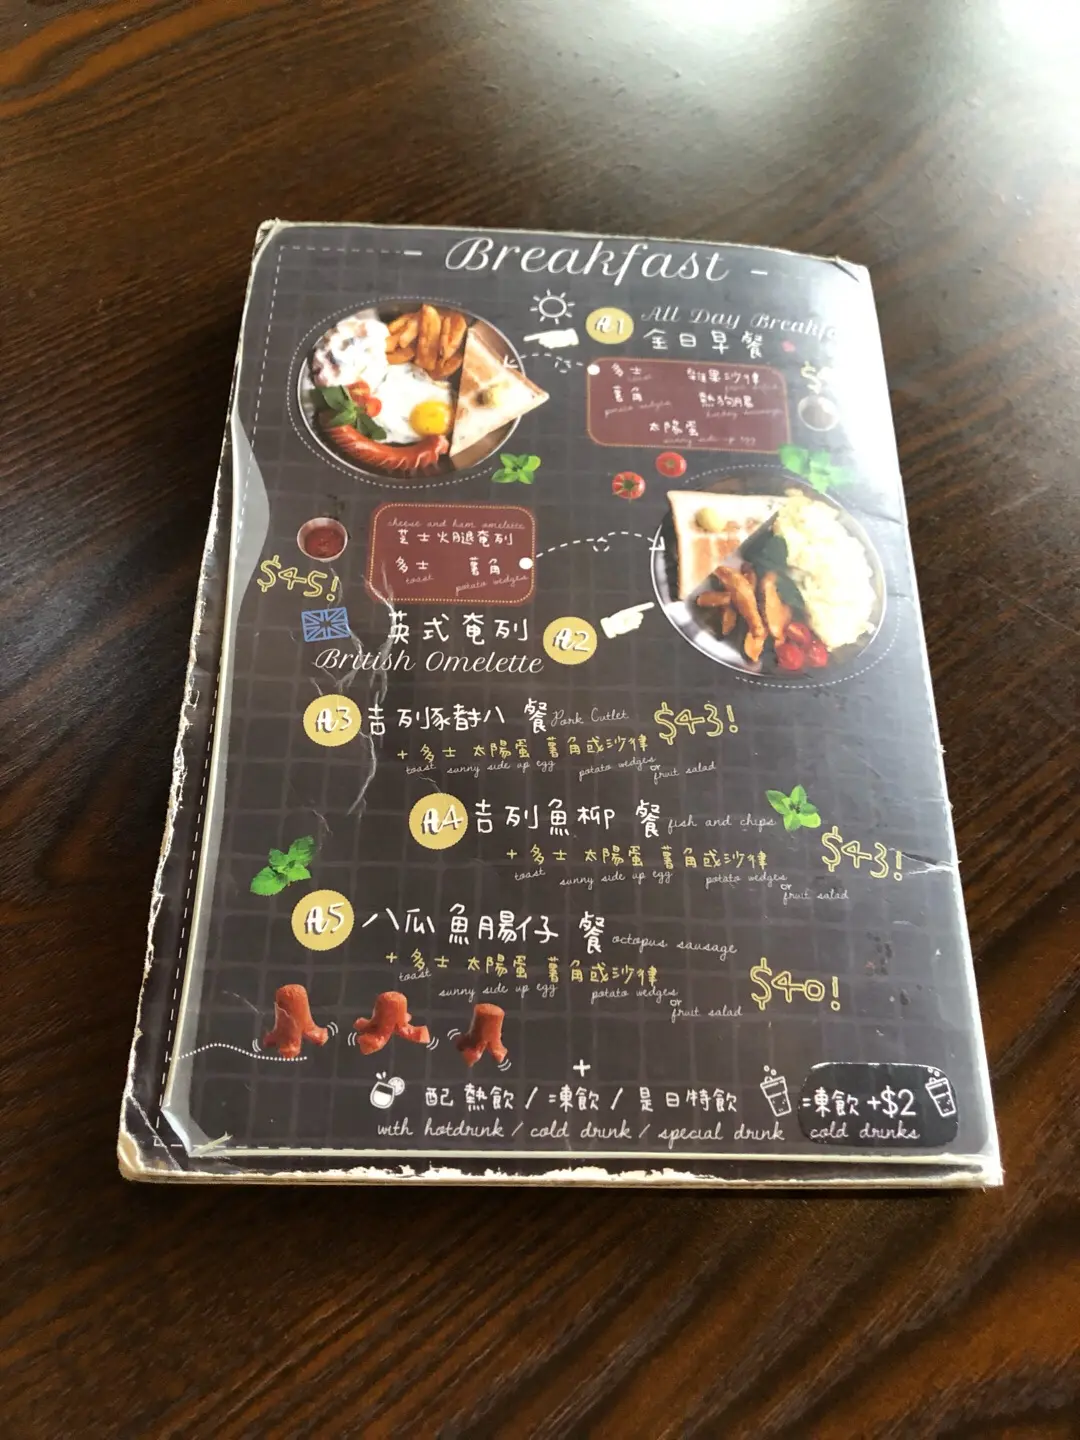 - Breakfast -
A1 All Day
全日早餐
多士 雜果沙律
toast
薯角 熱狗腸
potato wedges turkey sausage
太陽蛋
sunny side up egg
cheese and ham omelette
芝士火腿奄列
多士 薯角
toast potato wedges
$45!
英式奄列 A2
British Omelette
A3 吉列豬扒 餐 Pork Cutlet $43!
+ 多士 太陽蛋 薯角或沙律
toast sunny side up egg potato wedges or fruit salad
A4 吉列魚柳 餐 fish and chips
+ 多士 太陽蛋 薯角或沙律 $43!
toast sunny side up egg potato wedges or fruit salad
A5 八爪魚腸仔 餐 octopus sausage
+ 多士 太陽蛋 薯角或沙律 $40!
toast sunny side up egg potato wedges or fruit salad
+
配 熱飲 / 凍飲 / 是日特飲 凍飲 +$2
with hotdrink / cold drink / special drink cold drinks